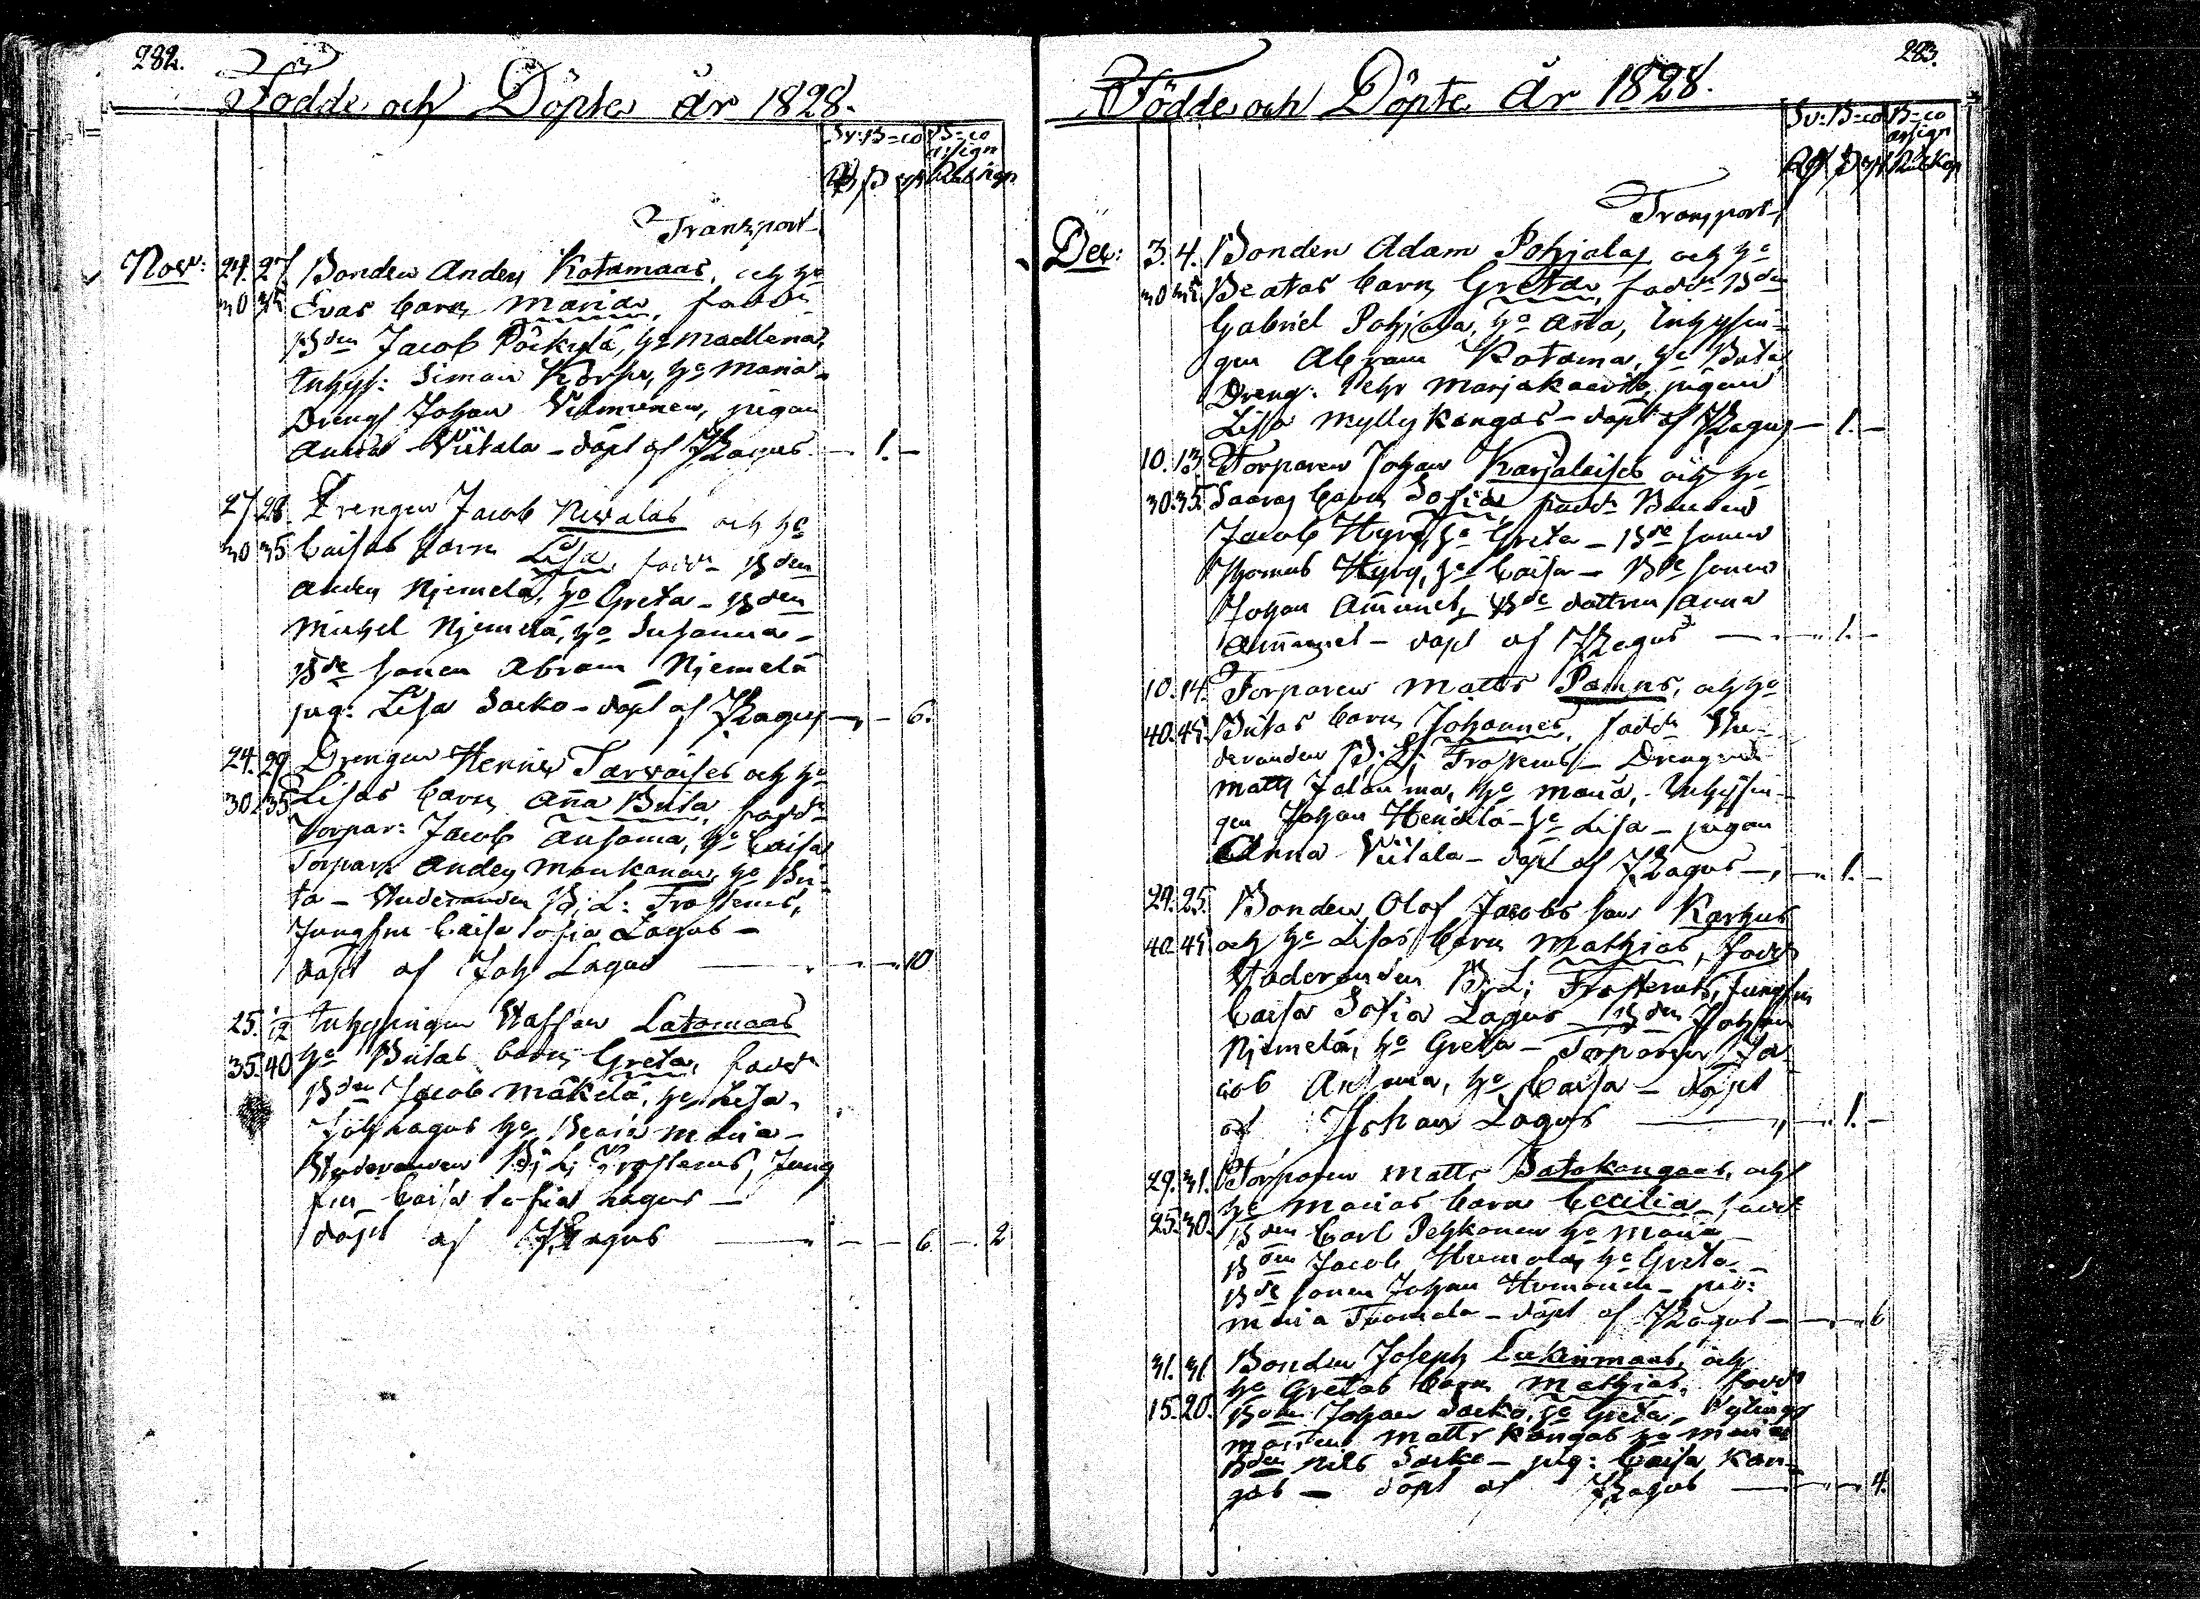 282.
Födde och Döpte år 1828.
Sv: B=co B=co
assign
Transport
Nov: 24. 27. Bonden Anders Kotamaas, och h:o
30 35 Evas barn Maria, fadd:
B:den Jacob Pöikilä, h:o Madlena,
Inhys: Simon Korpi, h:o Maria
Dreng: Johan Vilmunen, pigan
Anna Viitala - döpt af J Lagus - 1. -
27. 28. Drengen Jacob Nivalas och h:o
30 35 Caisas barn Lisa fadd: B:den
Anders Njemelä, h:o Greta - B:den
Michel Njemelä, h:o Susanna -
B:de sonen Abram Njemelä
pig: Lisa Sarko - döpt af J Lagus - 6.
24. 29. Drengen Henric Tarvaises och h:o
30. 35 Lisas barn Aña Brita, fadd:
Torpar: Jacob Ansama, h:o Caisa
Torpar: Anders Maukonen, h:o Bri-
ta - Studeranden B: L: Frosterus,
Jungfru Caisa Sofia Lagus -
döpt af Joh Lagus - 10
25. 1/12 Inhysingen Staffan Latomaas
35. 40 h:o Britas barn Greta, fadd:
B:den Jacob Mäkelä, h:o Lisa,
Joh Lagus h:o Beata Maria -
Studeranden B: L: Frosterus, Jung
fru Caisa Sofia Lagus -
döpt af J Lagus - 6. - 2
283.
Födde och Döpte År 1828.
Sv: B=co B=co
assign
Transport
Dec: 3. 4. Bonden Adam Pohjalas och h:o
30 35 Beatas barn Greta, fadd: B:den
Gabriel Pohjala, h:o Aña, Inhysin-
gen Abram Kotama, h:o Brita,
Dreng: Pehr Marjakaarto, pigan
Lisa Myllykangas - döpt af J Lagus - 1. -
10. 13. Torparen Johan Karjalaises och h:o
30. 35. Saaras barn Sofia fadd: Bonden
Jacob Hyry, h:o Greta - B:de sonen
Thomas Hyry, h:o Caisa - B:de sonen
Johan Am̃unet, B:de dottren Anna
Am̃unet - döpt af J Lagus - 1. -
10. 14. Torparen Matts Pamps, och h:o
40. 45. Britas barn Johannes, fadd: Stu-
deranden B: L: Frosterus - Drengen
Matts Jalon̄ma, h:o Maria, Inhysin-
gen Johan Heickilä - h:o Lisa - pigan
Anna Viitala - döpt af J Lagus - 1. -
24. 25. Bonden Olof Jacobs son Karhus
40. 45 och h:o Lisas barn Mathias, fadd:
Studeranden B: L: Frosterus, Jungfru
Caisa Sofia Lagus - B:den Johan
Njemelä, h:o Greta - Torparen Ja
cob Ansama, h:o Caisa - döpt
af Johan Lagus - 1. -
29. 31. Torparen Matts Satokangas, och
25. 30. h:o Marias barn Cecilia, fadd:
B:den Carl Pehkonen h:o Maria -
B:den Jacob Humala, h:o Greta -
B:de sonen Johan Humonen - pig:
Maria Tuomela - döpt af J Lagus - 6
31. 31 Bonden Joseph Leckinmaas, och
15. 20. h:o Gretas barn Mathias, fadd:
B:den Johan Sarko, h:o Greta,
Matts Kangas h:o Maria
B:den Nils Sarko - pig: Caisa Kan-
gas - döpt af J Lagus - 4.